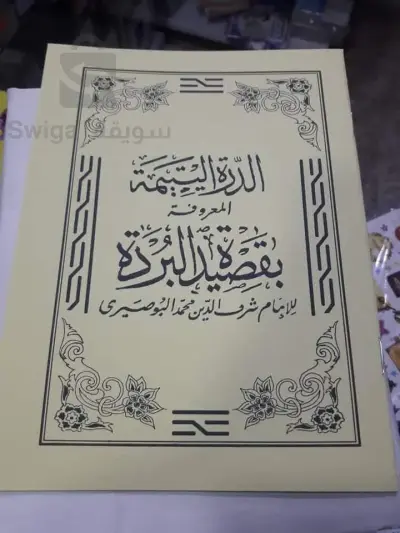 سويقة Swiga
الدرة اليتيمة
المعروفة
بقصيدة البردة
للإمام شرف الدين محمد البوصيرى